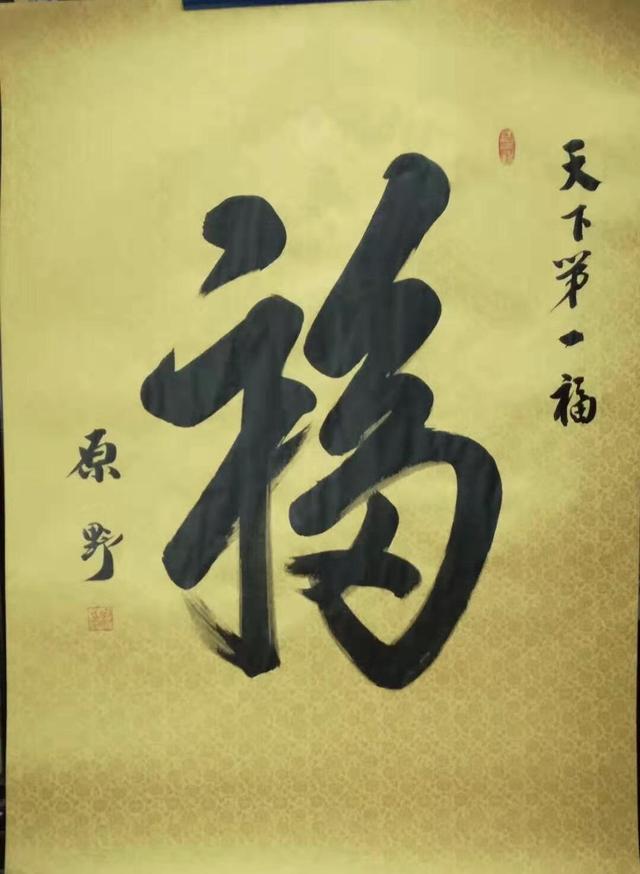 天下第一福
福
原野